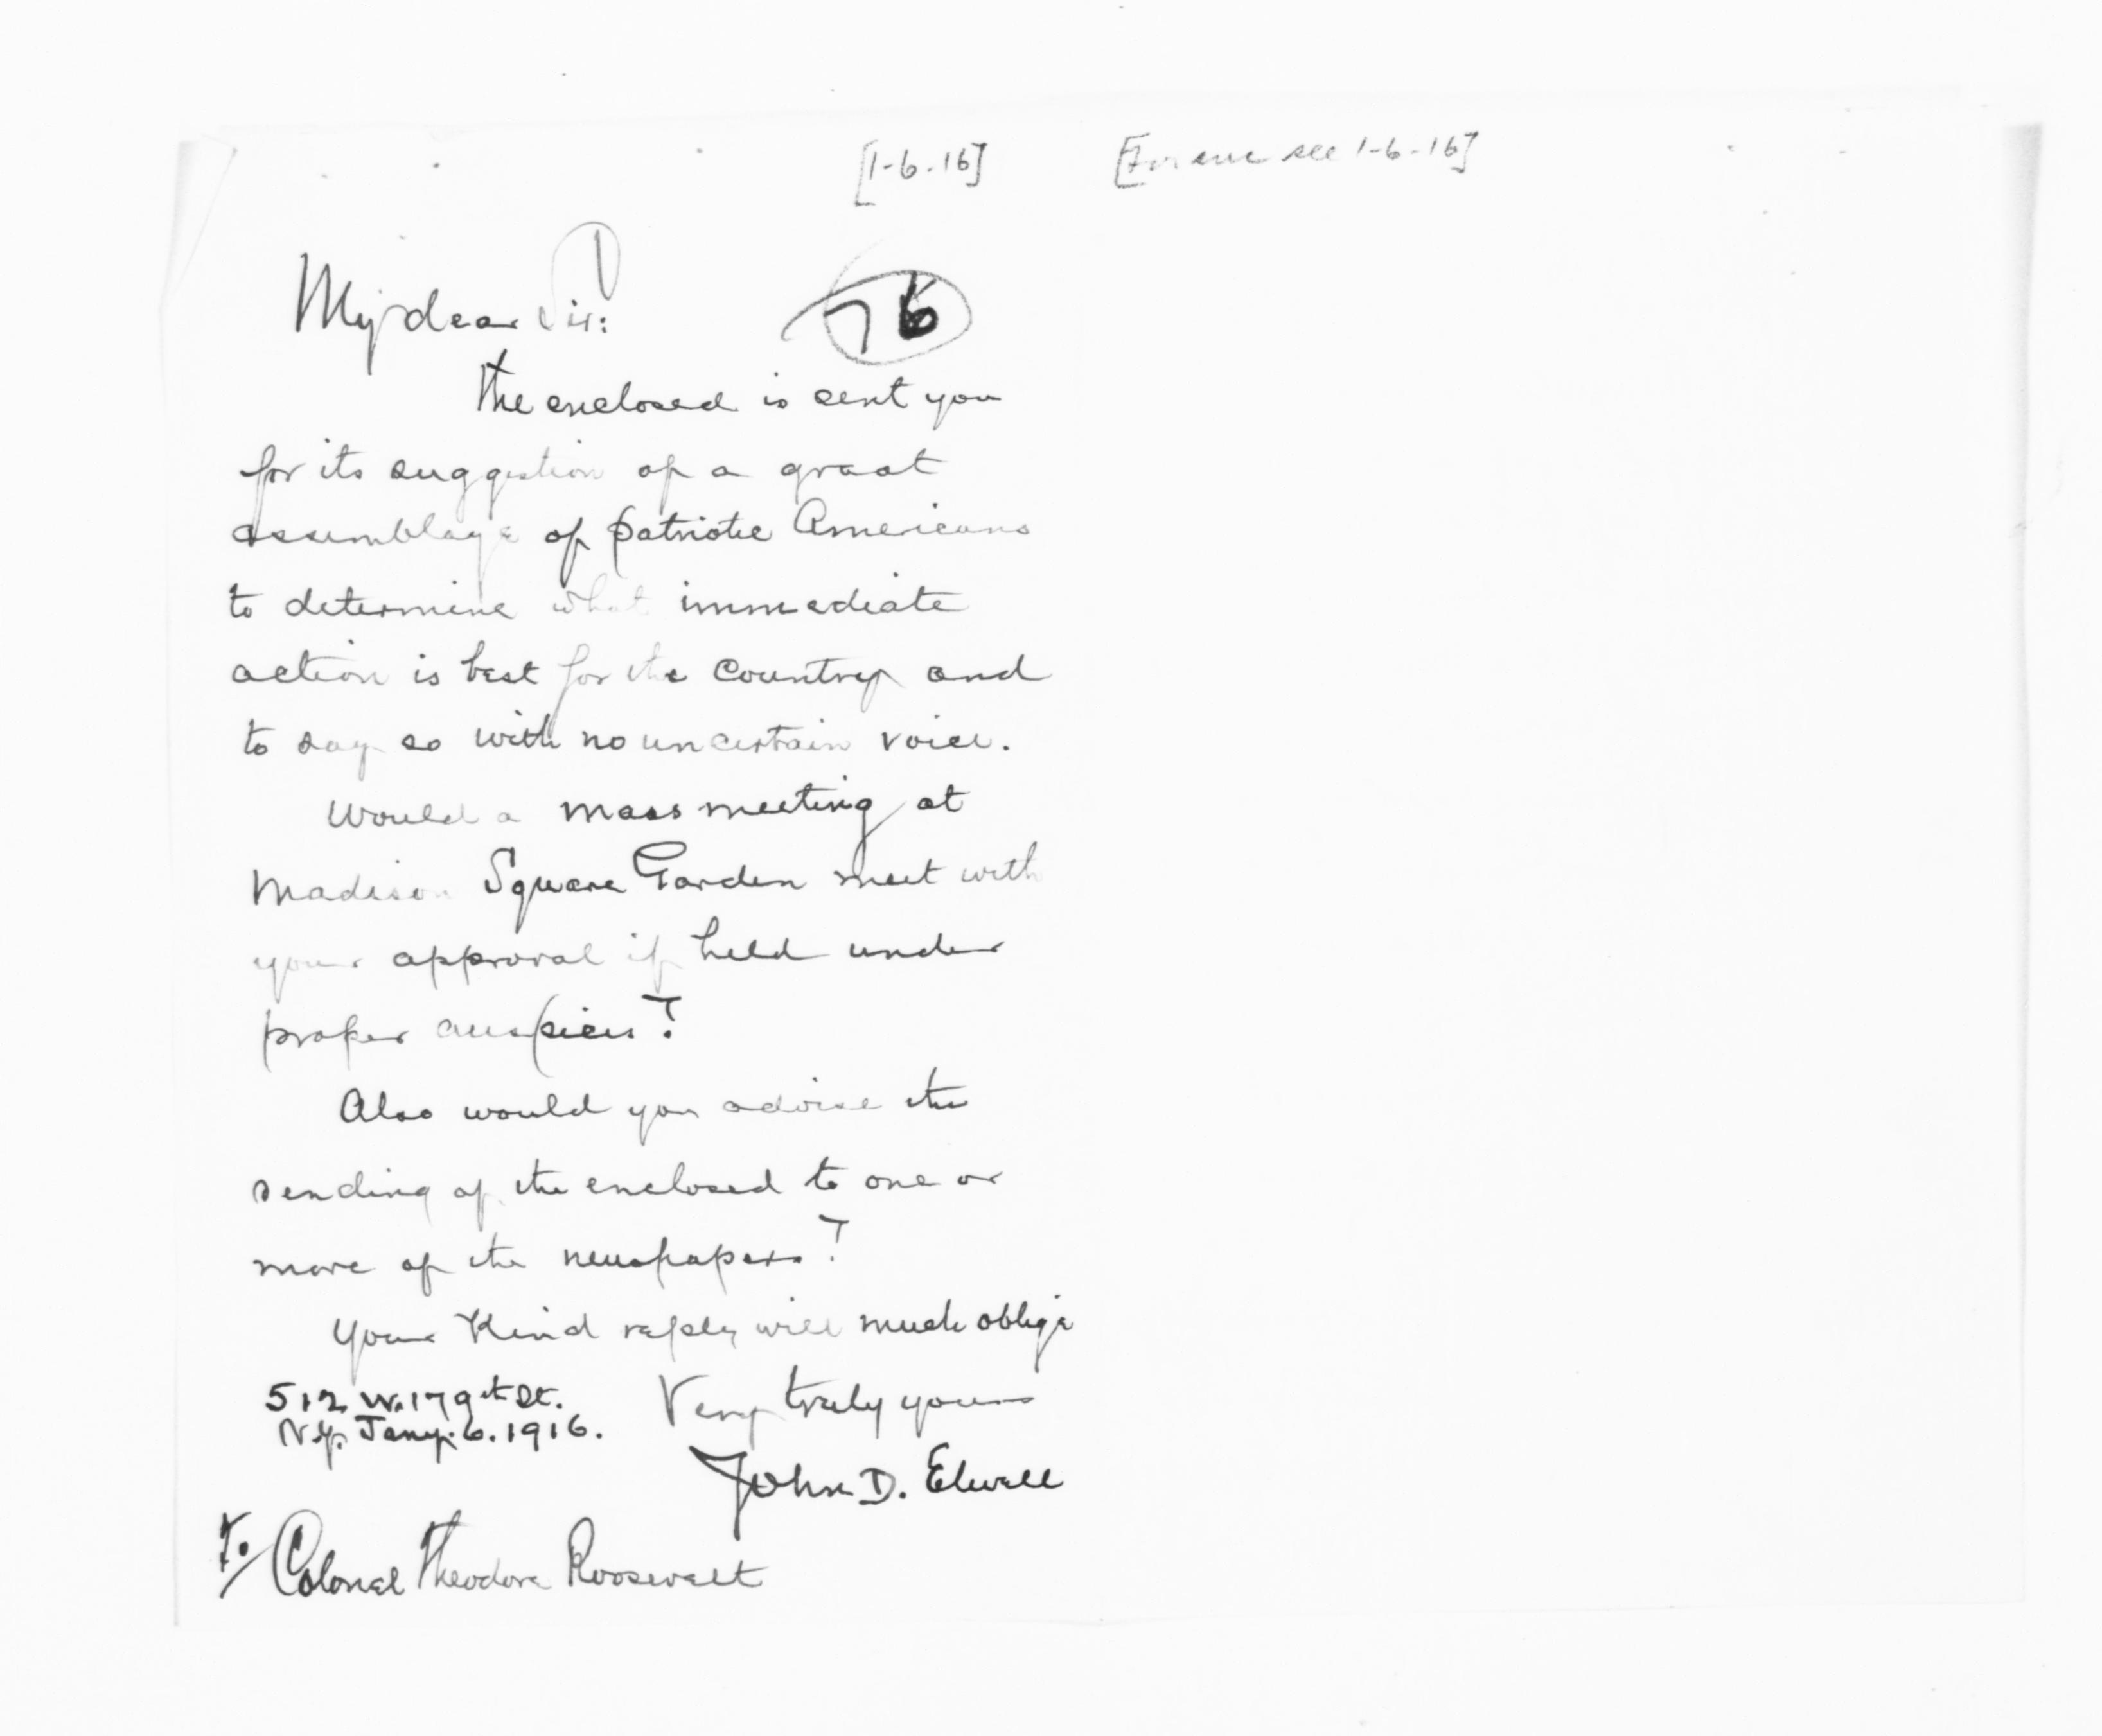 [1-6-16] [For enc see 1-6-16]
My dear Sir:
76
The enclosed is sent you
for its suggestion of a great
assemblage of patriotic Americans
to determine what immediate
action is best for the country and
to say so with no uncertain voice.
Would a mass meeting at
Madison Square Garden meet with
your approval if held under
proper auspices?
Also would you advise the
sending of the enclosed to one or
more of the newspapers?
Your kind reply will much oblige
Very truly yours
512 W. 179th St.
N.Y. Jany. 6. 1916.
John D. Elwell
To/ Colonel Theodore Roosevelt